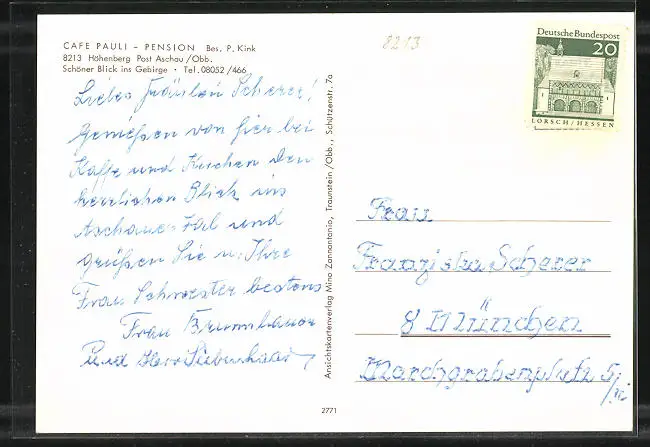 CAFE PAULI – PENSION Bes. P. Kink
8213 Höhenberg Post Aschau/Obb.
Schöner Blick ins Gebirge · Tel. 08052/466
8213
Deutsche Bundespost
20
LORSCH/HESSEN
Liebes Fräulein Scherer!
Genießen von hier bei
Kaffe und Kuchen den
herrlichen Blick ins
Aschauer Tal und
grüßen Sie u. Ihre
Frau Schwester bestens
Frau Brummbauer
und Herr
Ansichtskartenverlag Mino Zannantonio, Traunstein/Obb., Schützenstr. 7a
Frau
Franziska Scherer
8 München
5/
2771